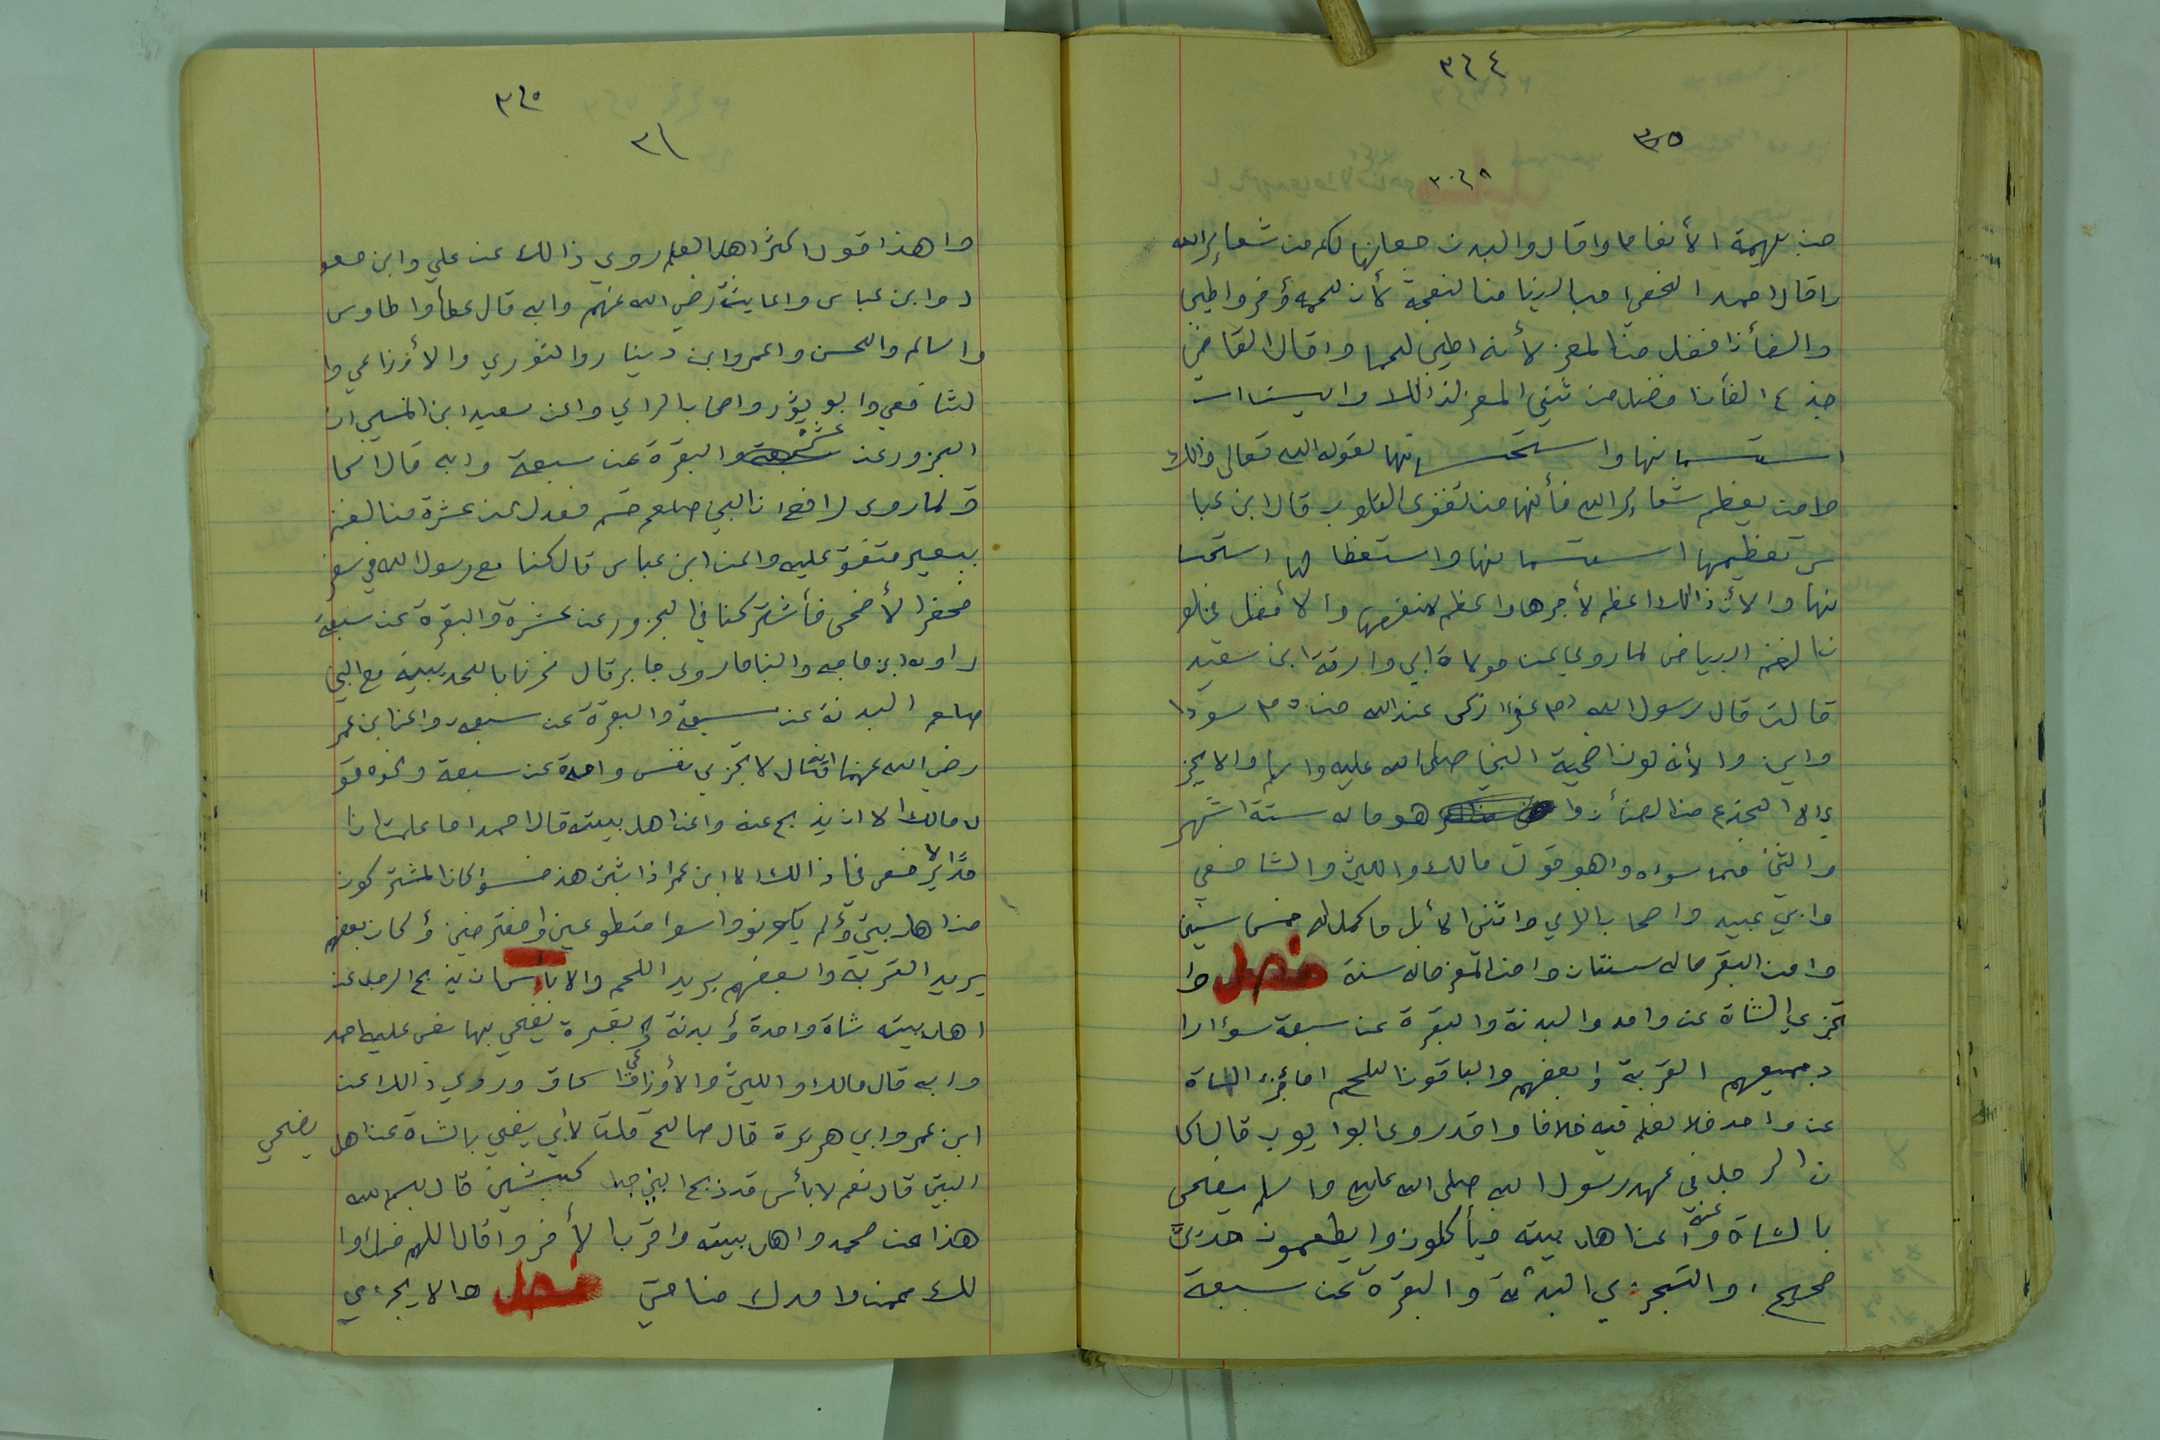 ٣٤٤
٣٥
٣٠٤٨
من بهيمة الأنعام وا قال والبدن جعلنها لكم من شعاير الله
وا قال احمد النعجي من النعجة لأن لحمه أوفر وا طيب
والضأن افضل من المعز لأنه اطيب لحما وا قال القاضي
جذع الضأن افضل من ثني المعز لذالك وا يسن است
استسمانها وا ستحسانها لقوله الله تعالى ذالك
وا من يعظم شعاير الله فأنها من تقوى القلوب قال ابن عبا
س تعظيمها استسمانها واستعظامها استحسا
نها والأن ذالك اعظم لأجرها وا عظم لنفعها والأفضل
الغنم البياض لما روي عن مولاة ابي وارقة ابن سعيد
قالت قال رسول الله دم عفرا ازكى عند الله من دم سودا
وين والأنه لون اضحية النبي صلى الله عليه وا سلم والا يجز
ي الا الجذع من الضأن وا هو ماله ستة اشهر
والثني مما سواه واهو قول مالك والليث والشافعي
وابي عبيد واصحاب الراي وا ثني الأبل ما كمل له خمس سنين
وا من البقر ماله سنتان وا من المعز ماله سنة فصل وا
تجزي الشاة عن واحد والبدنة والبقرة عن سبعة سواء ارا
د جميعهم القربة او بعضهم والباقون اللحم اما جزاء الشاة
عن واحد فلا نعلم فيه خلافا واقد روى ابوا يوب قال كا
ن الرجل في عهد رسول الله صلى الله عليه وا سلم يضحي
بالشاة عنه وا عن اهل بيته فيأكلون وا يطعمون حديث
صحيح، والتجزي البدنة والبقرة عن سبعة
٣٤٥
٣١
وا هذا قول اكثر اهل العلم روي ذالك عن علي وابن مسعو
د وابن عباس وا عايشة رضي الله عنهم وابه قال عطا وا طاوس
وا سالم والحسن وا عمر وابن دينار والثوري والأوزاعي وا
لشافعي وابو ثور واصحاب الراي وا عن سعيد ابن المسيب ان
الجزور عن عشرة والبقرة عن سبعة وابه قال اسحا
ق لما روى رافع ان النبي صلعم قسم فعدل عن عشرة من الغنم
ببعير متفق عليه وا عن ابن عباس قال كنا مع رسول الله في سفر
فحضر الأضحى فأشتركنا في الجزور عن عشرة والبقرة عن سبعة
راوه ابن ماجه والنا ما روى جابر قال نحرنا بالحديبية مع النبي
صلعم البدنة عن سبعة والبقرة عن سبعة وا عن ابن عمر
رضي الله عنهما انه قال لا تجزي نفس واحدة عن سبعة ونحوه قو
ل مالك الا ان يذبح عنه وا عن اهل بيته قال احمد ما علمت ان ا
حدًا الا يرخص في ذالك الا ابن عمر اذا ثبت هذا فسواء كان المشتركون
من اهل بيت أو لم يكونوا وسوا متطوعين او مفترضين أو كان بعضهم
يريد القربة وا بعضهم يريد اللحم والا بأس ان يذبح الرجل عن
اهل بيته شاة واحدة أو بدنة او بقرة يضحي بها نص عليه احمد
وابه قال مالك والليث والأوزاعي وا سحاق وروي ذالك عن
ابن عمر وابي هريرة قال صالح قلت لأبي يضحي بالشاة عن اهل
يضحي
البيت قال نعم لا بأس قد ذبح النبي كبشين قال بسم الله
هذا عن محمد واهل بيته واقربا لأخر وا قال اللهم منك وا
لك عمن وا حدك من امتي فصل والا يجزي